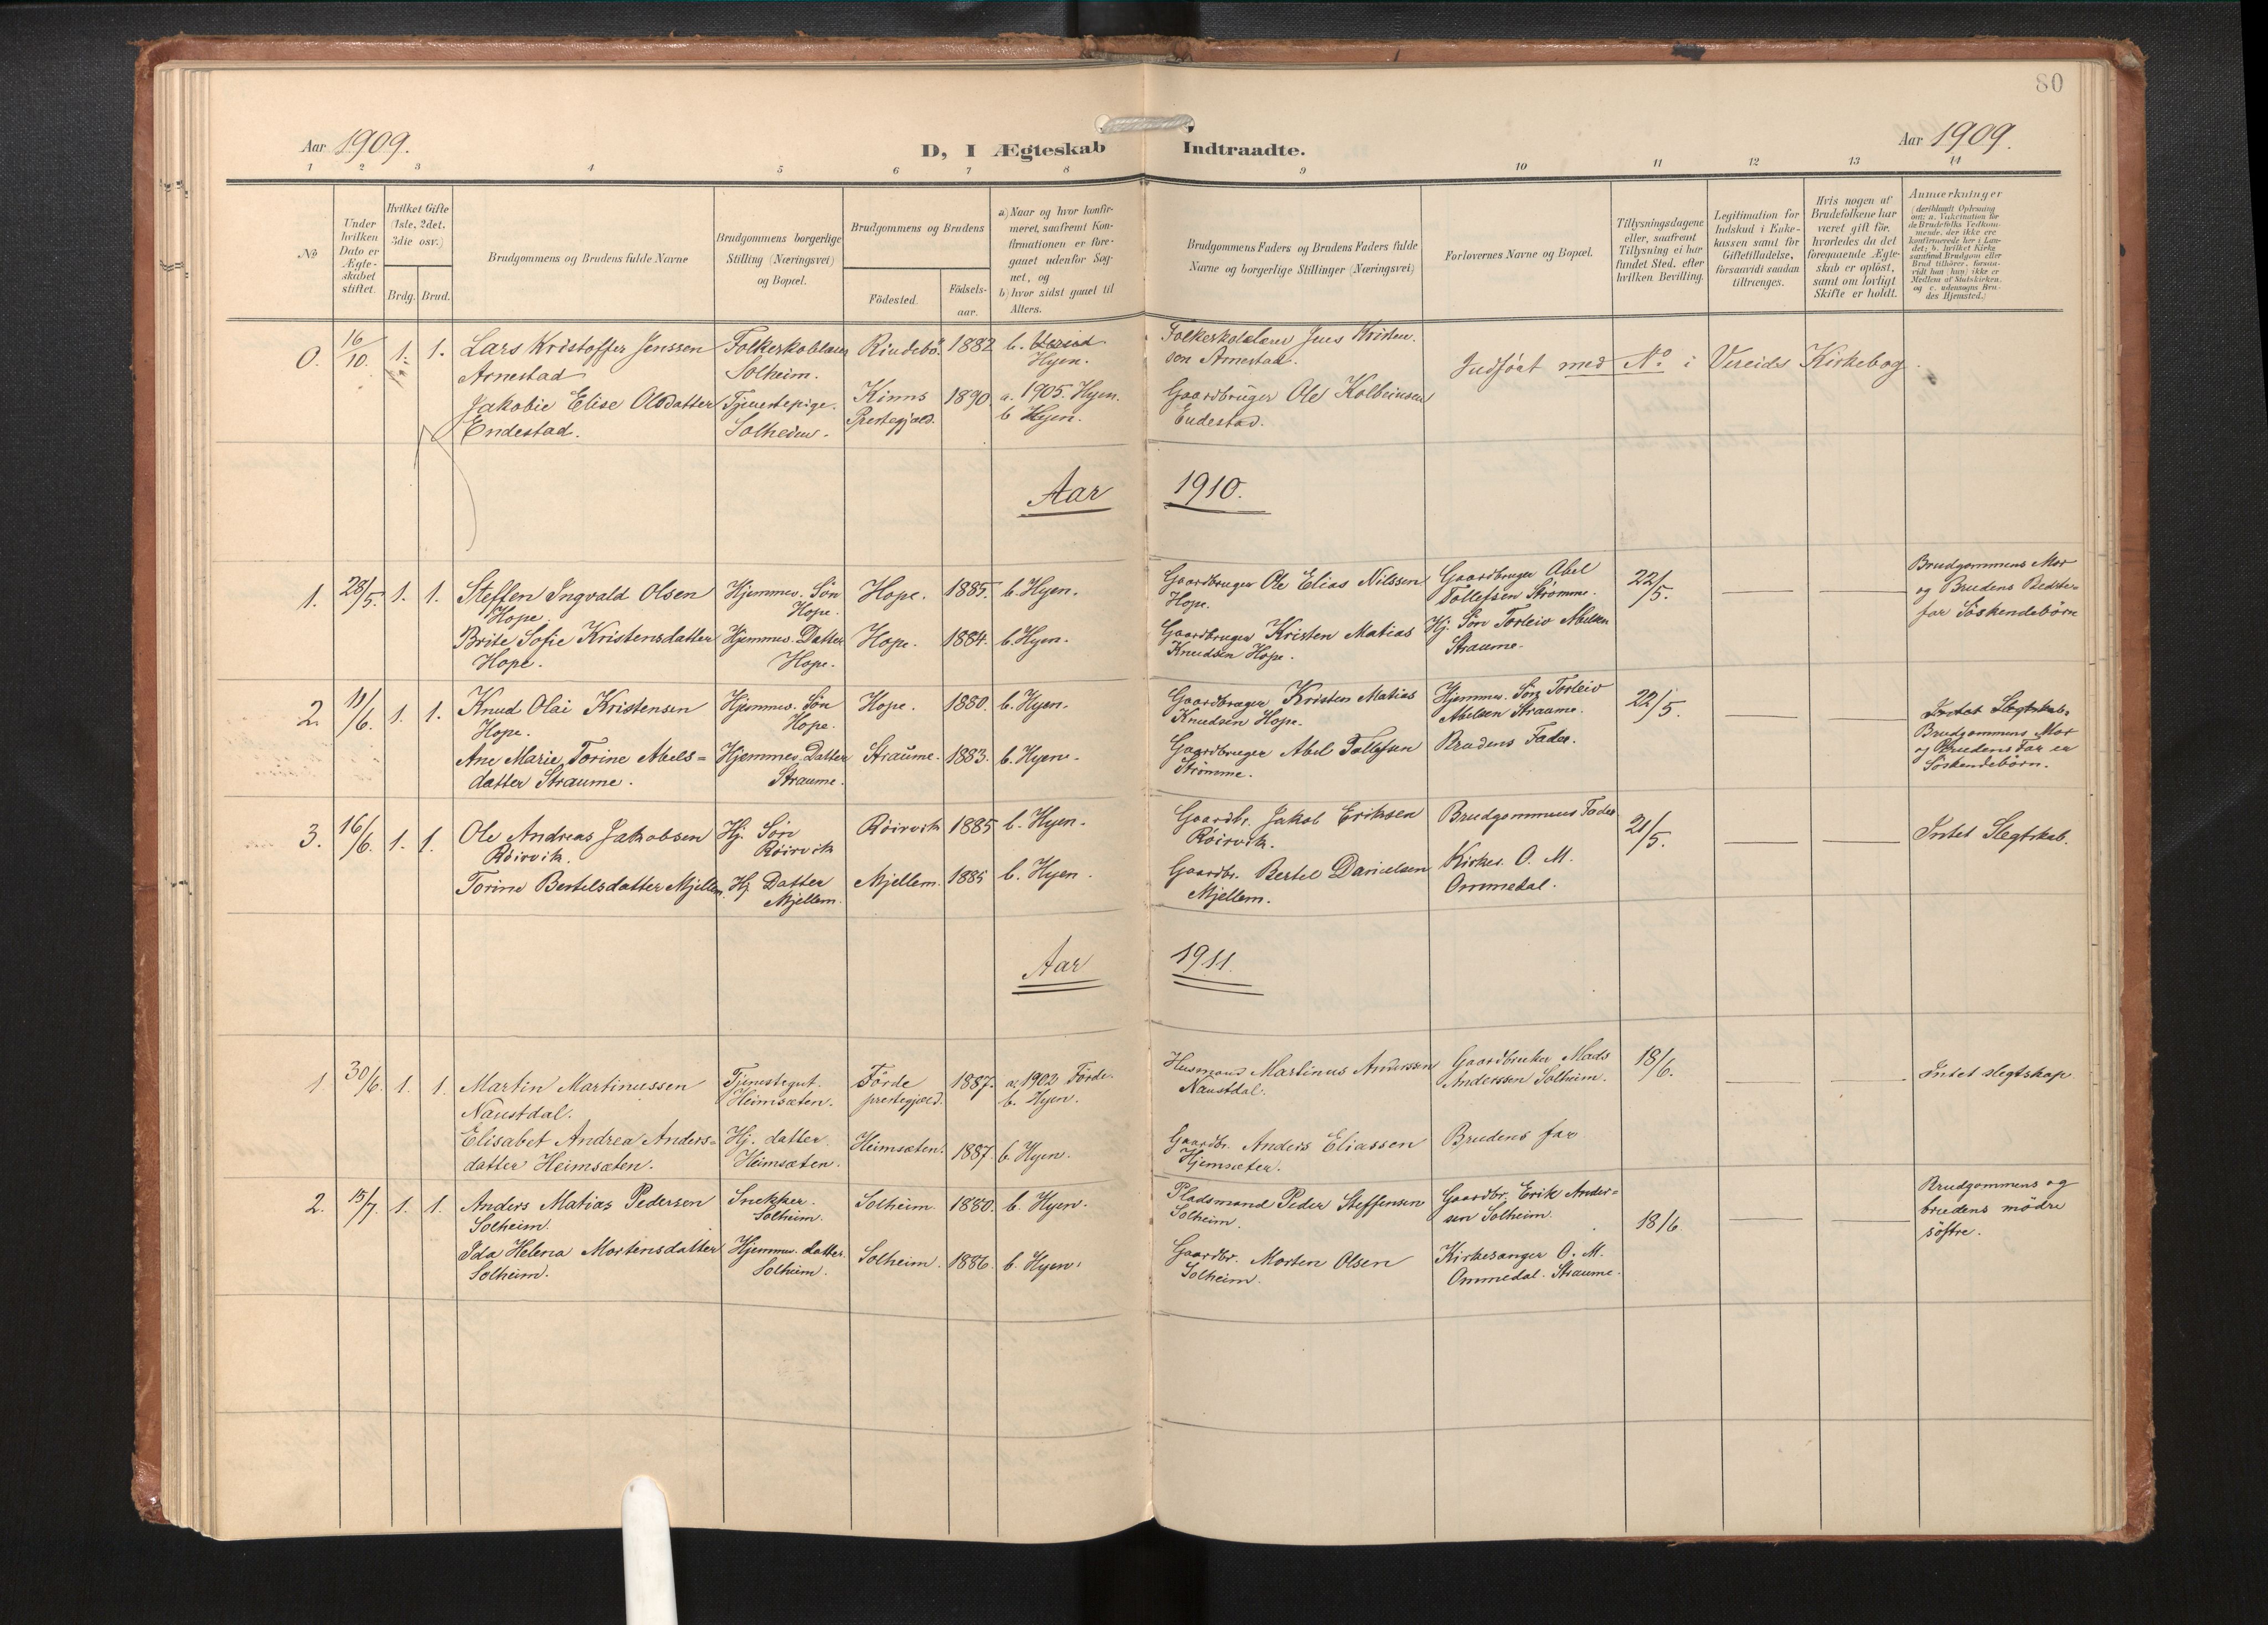 80
Aar 1909.
D, I Ægteskab Indtraadte.
Aar 1909.
1 2 3 4 5 6 7 8 9 10 11 12 13 14
No
Under hvilken Dato er Ægte-skabet stiftet.
Hvilket Gifte (1ste, 2det, 3die osv.)
Brdg. Brud.
Brudgommens og Brudens fulde Navne
Brudgommens borgerlige Stilling (Næringsvei) og Bopæl.
Brudgommens og Brudens
Födested.
Födsels-aar.
a) Naar og hvor konfir-meret, saafremt Kon-firmationen er fore-gaaet udenfor Sog-net, og
b) hvor sidst gaaet til Alters.
Brudgommens Faders og Brudens Faders fulde Navne og borgerlige Stillinger (Næringsvei)
Forlovernes Navne og Bopæl.
Tillysningsdagene eller, saafremt Tillysning ei har fundet Sted, efter hvilken Bevilling.
Legitimation for Indskud i Enke-kassen samt for Giftetilladelse, forsaavidt saadan tiltrænges.
Hvis nogen af Brudefolkene har været gift før, hvorledes da det foregaaende Ægte-skab er oplöst, samt om lovligt Skifte er holdt.
Anmærkninger
(deriblandt Oplysning om: a. Vakcination for de Brudefolks Vedkom-mende, der ikke ere konfirmerede her i Lan-det; b. hvilket Kirke-samfund Brudgom eller Brud tilhörer, forsaa-vidt han (hun) ikke er Medlem af Statskirken, og c. udensogns Bru-des Hjemsted.)
0. 16/10. 1. 1. Lars Kristoffer Jenssen Folkeskolelærer Rindebö. 1882 b. Vereid Folkeskolelærer Jens Kristen-
Arnestad Solheim. Hyen. sen Arnestad. Indført med No i Vereids Kirkebog.
Jakobie Elise Olsdatter Tjenestepige. Kinns 1890. a. 1905. Hyen. Gaardbruger Ole Kolbeinsen
Endestad. Solheim. Prestegjæld. b Hyen. Endestad.
Aar 1910.
1. 28/5. 1. 1. Steffen Ingvald Olsen Hjemmev. Sön Hope. 1885. b. Hyen. Gaardbruger Ole Elias Nilssen Gaardbruger Abel 22/5. Brudgommens Mor
Hope. Hope. Hope. Tollefsen Strømme. og Brudens Bedste-
far Söskendebörn
Brite Sofie Kristensdatter Hjemmev. Datter Hope. 1884. b. Hyen. Gaardbruger Kristen Matias Hj. Sön Torleiv Abelsen
Hope. Hope. Knudsen Hope. Straume.
2. 11/6. 1. 1. Knud Olai Kristensen Hjemmev. Sön Hope. 1880. b. Hyen. Gaardbruger Kristen Matias Hjemmev. Sön Torleiv 22/5. Intet Slegtskab.
Hope. Hope. Knudsen Hope. Abelsen Straume. Brudgommens Mor
Ane Marie Torine Abels= Hjemmev. Datter Straume. 1883. b. Hyen. Gaardbruger Abel Tollefsen Brudens Fader. og Brudens Far er
datter Straume. Straume. Strömme. Söskendebörn.
3. 16/6. 1. 1. Ole Andreas Jakobsen Hj. Sön Röirvik 1885 b. Hyen. Gaardbr. Jakob Eriksen Brudgommens Fader 21/5. Intet Slegtskab.
Röirvik. Röirvik Röirvik.
Torine Bertelsdatter Mjellem. Hj. Datter Mjellem. 1885 b. Hyen. Gaardbr. Bertel Danielsen Kirkes. O. M.
Mjellem. Mjellem. Ommedal.
Aar 1911.
1 30/6. 1. 1. Martin Martinussen Tjenestegut. Förde 1887. a. 1902 Förde. Husmand Martinus Anderssen Gaardbruker Mads 18/6. Intet slegtskap
Naustdal. Heimsæten. prestegjæld. b. Hyen. Naustdal. Anderssen Solheim.
Elisabet Andrea Anders= Hj. datter. Heimsæten. 1887. b. Hyen. Gaardbr. Anders Eliassen Brudens far
datter Heimsæten. Heimsæten. Hjemsæter.
2. 15/7. 1. 1. Anders Matias Pedersen Snekker. Solheim. 1880. b. Hyen. Pladsmand Peder Steffensen Gaardbr. Erik Ander= 18/6 Brudgommens og
Solheim. Solheim. Solheim. sen Solheim. brudens mödre
söstre.
Ida Helena Mortensdatter Hjemmev. datter. Solheim. 1886. b. Hyen. Gaardbr. Morten Olsen Kirkesanger O. M.
Solheim. Solheim. Solheim. Ommedal. Straume.